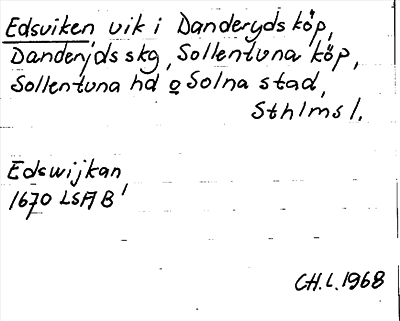 Edsviken vik i Danderyds köp,
Danderyds skg, Sollentuna köp,
Sollentuna hd o Solna stad,
Sthlms l.
Edswijkan
1670 LSA B 1
CH.L. 1968